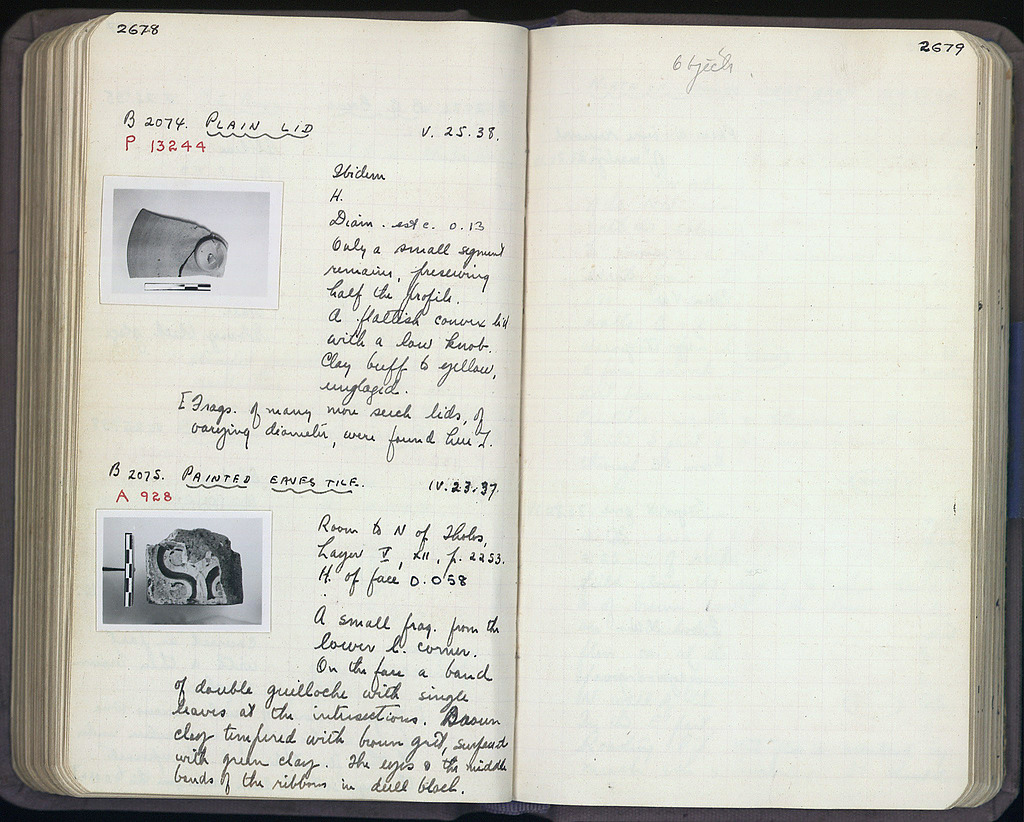 2678
B 2074. PLAIN LID V. 25.38.
P 13244
Ibidem
H.
Diam. est c. 0.13
Only a small segment
remains, preserving
half the profile.
A flattish convex lid
with a low knob.
Clay buff to yellow,
unglazed.
[Frags. of many more such lids, of
varying diameter, were found here].
B 2075. PAINTED EAVES TILE. IV.23.37.
A 928
Room to N of Tholos,
Layer V, XII, p. 2253.
H. of face 0.058
A small frag. from the
lower l. corner.
On the face a band
of double guilloche with single
leaves at the intersections. Brown
clay tempered with brown grit, surfaced
with green clay. The eyes & the middle
bands of the ribbons in dull black.
2679
Objects